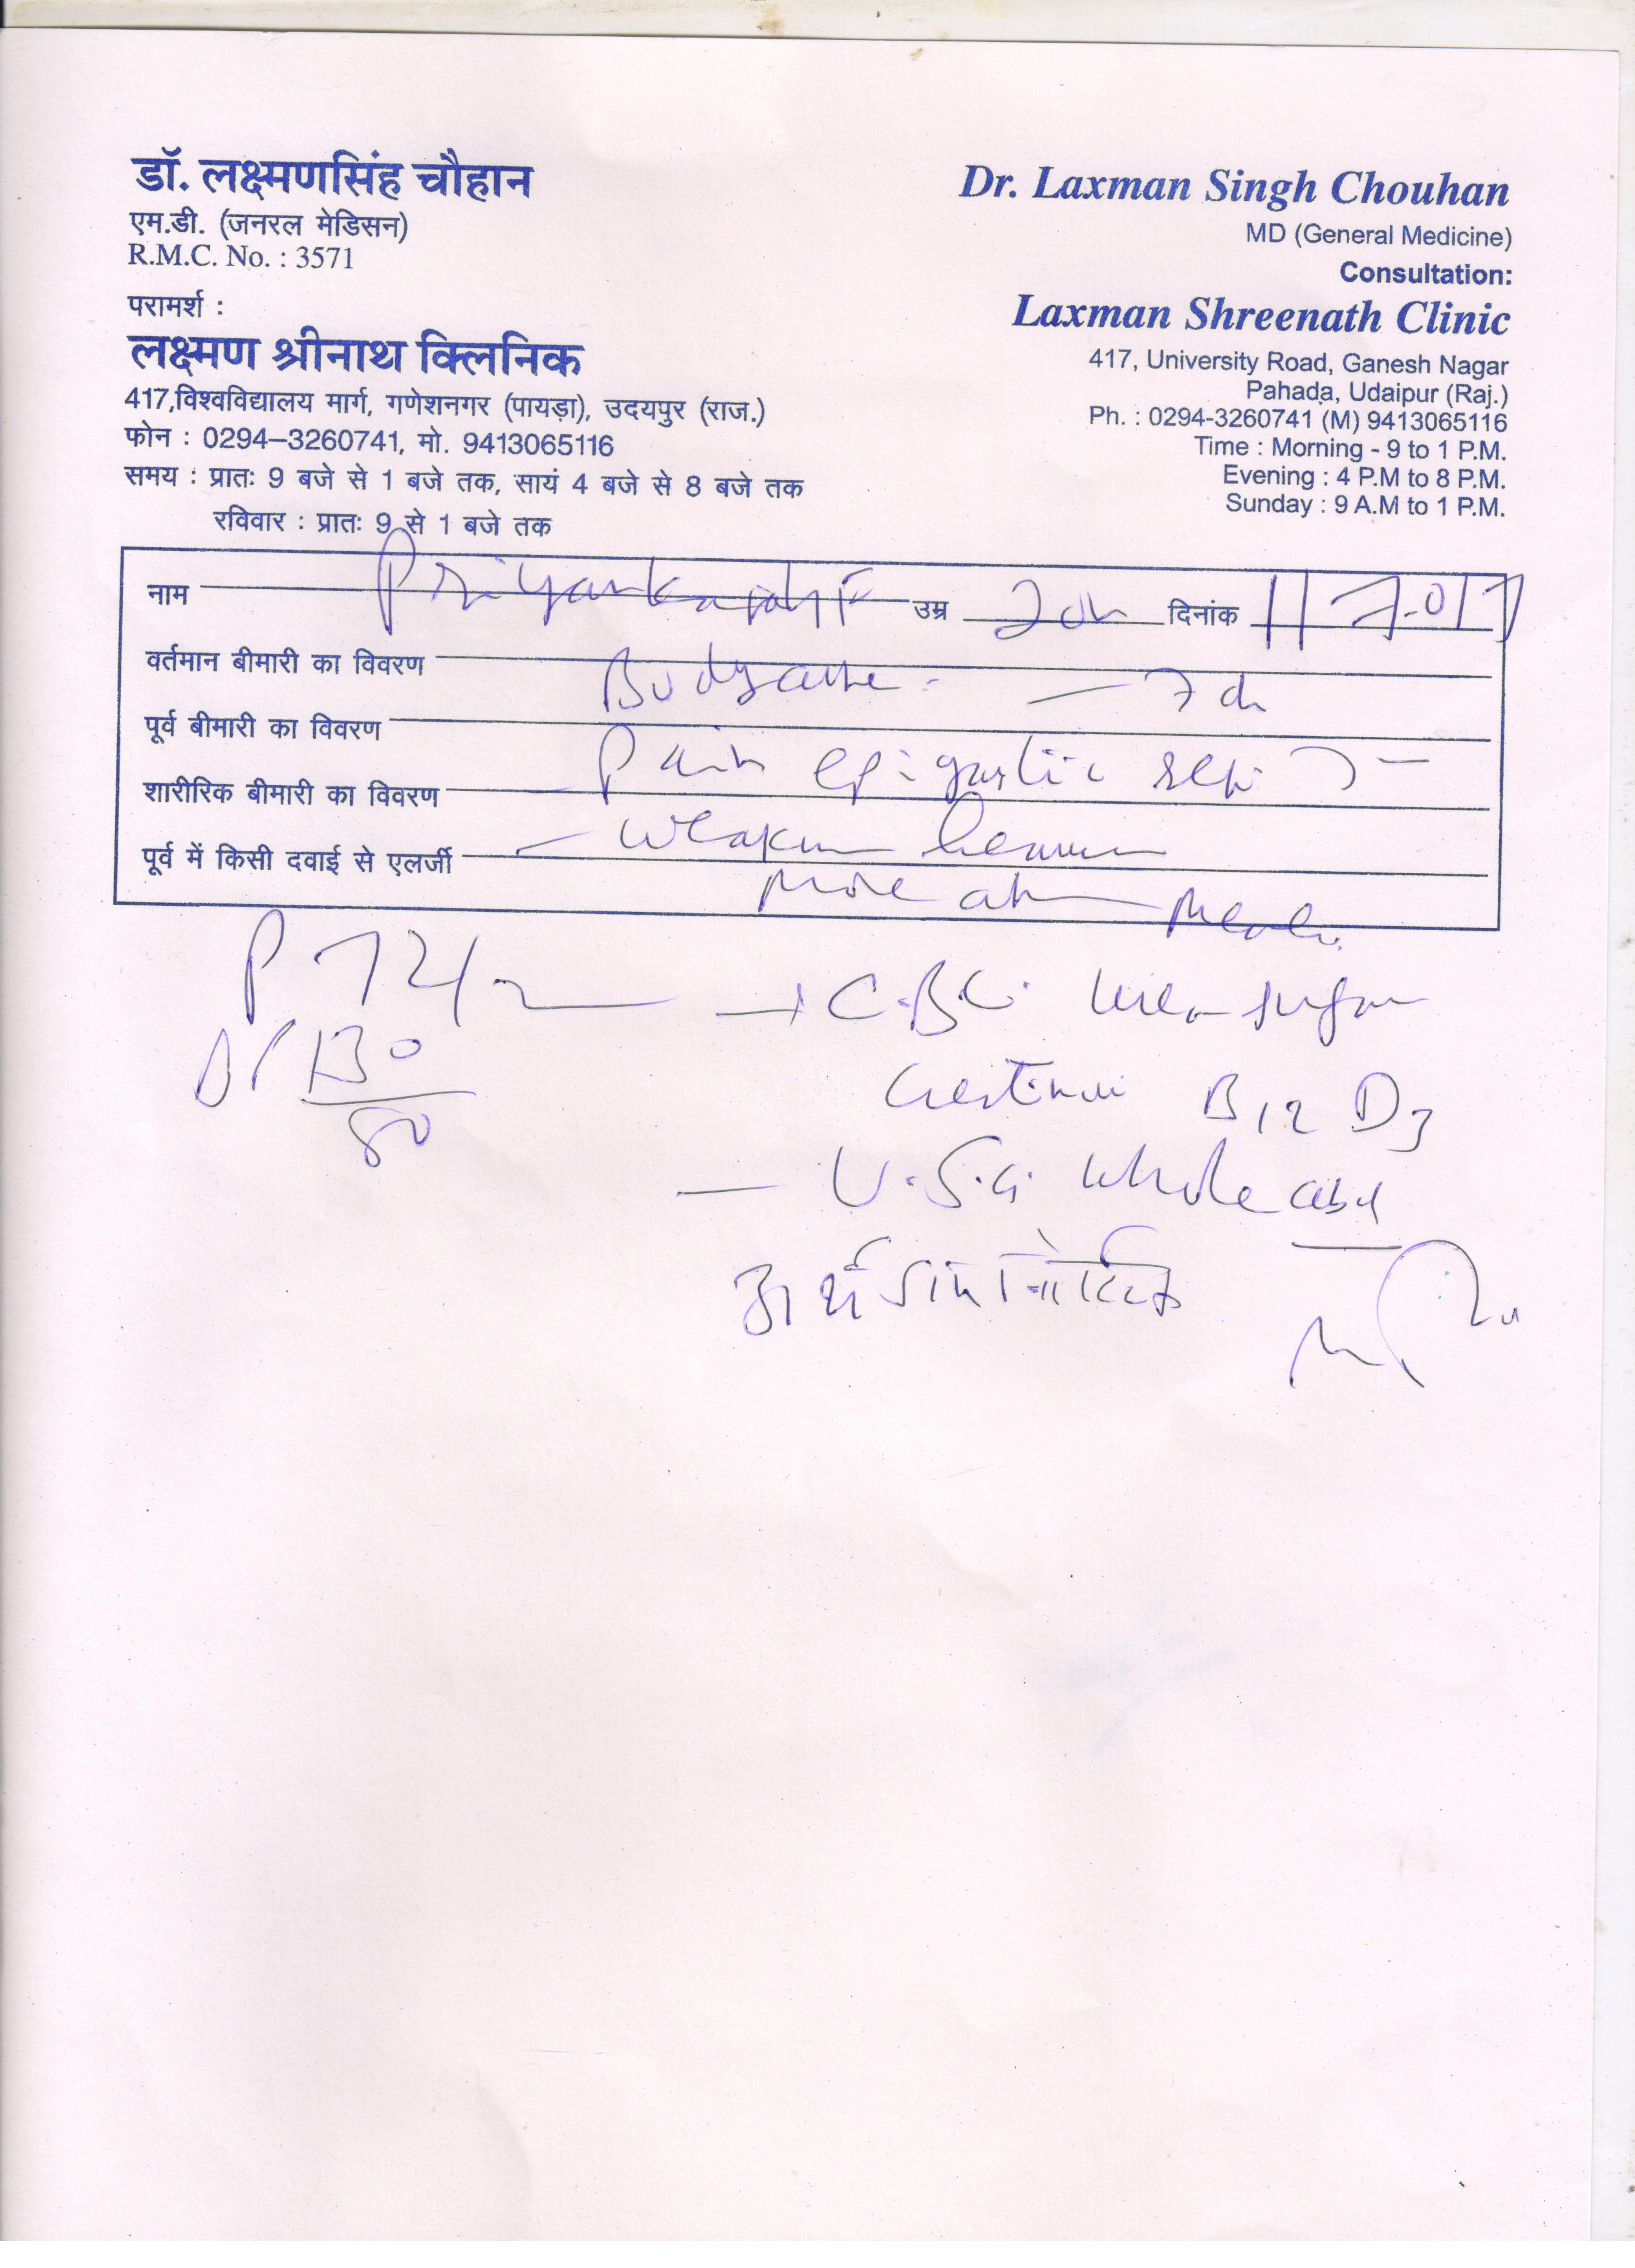 डॉ. लक्ष्मणसिंह चौहान
एम.डी. (जनरल मेडिसन)
R.M.C. No. : 3571
परामर्श :
लक्ष्मण श्रीनाथ क्लिनिक
417,विश्वविद्यालय मार्ग, गणेशनगर (पायड़ा), उदयपुर (राज.)
फोन : 0294–3260741, मो. 9413065116
समय : प्रातः 9 बजे से 1 बजे तक, सायं 4 बजे से 8 बजे तक
रविवार : प्रातः 9 से 1 बजे तक
Dr. Laxman Singh Chouhan
MD (General Medicine)
Consultation:
Laxman Shreenath Clinic
417, University Road, Ganesh Nagar
Pahada, Udaipur (Raj.)
Ph. : 0294-3260741 (M) 9413065116
Time : Morning - 9 to 1 P.M.
Evening : 4 P.M to 8 P.M.
Sunday : 9 A.M to 1 P.M.
नाम उम्र दिनांक 11-7-017
वर्तमान बीमारी का विवरण Bodyache
पूर्व बीमारी का विवरण
शारीरिक बीमारी का विवरण Pain epigastric
पूर्व में किसी दवाई से एलर्जी
P 72/
130
80
C.B.C. Urea sugar
B12 D3
— U.S.G. whole abd